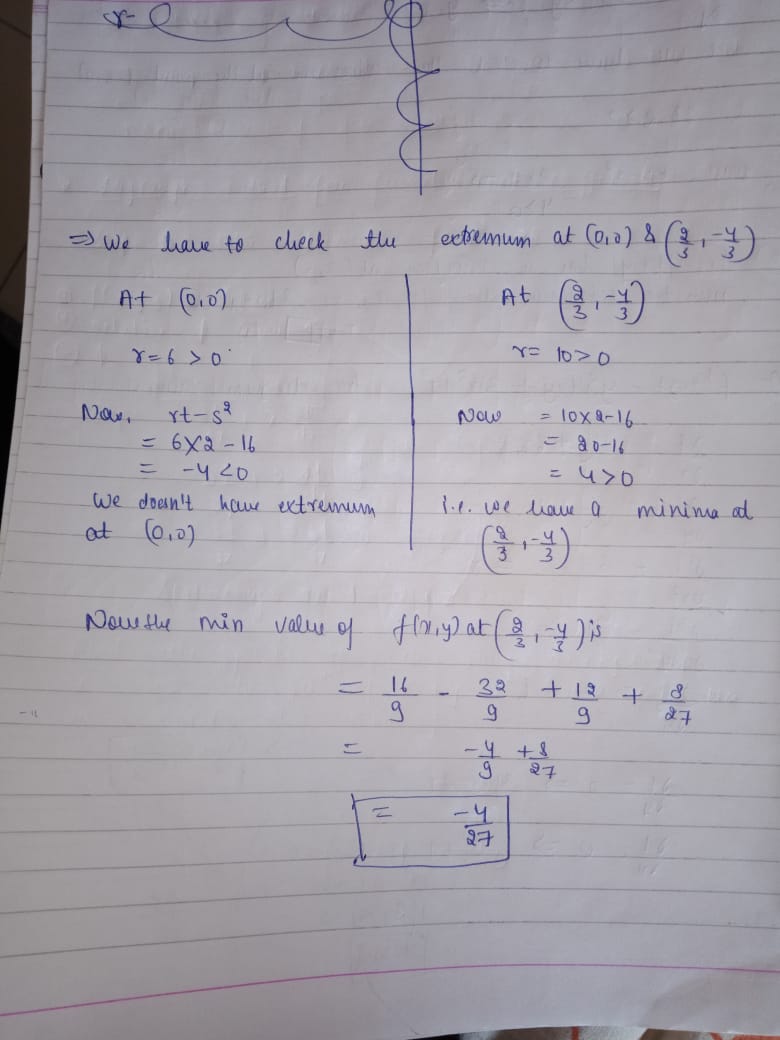 ⇒ We have to check the extremum at (0,0) & (2/3, -4/3)
At (0,0)
r = 6 > 0
Now, rt - s²
= 6×2 - 16
= -4 < 0
We doesn't have extremum
at (0,0)
At (2/3, -4/3)
r = 10 > 0
Now = 10×2-16
= 20-16
= 4 > 0
i.e. we have a minima at
(2/3, -4/3)
Now the min value of f(x,y) at (2/3, -4/3) is
= 16/9 - 32/9 + 12/9 + 8/27
= -4/9 + 8/27
= -4/27